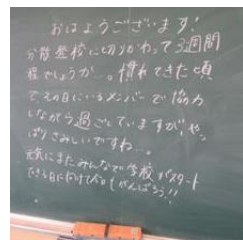 おはようございます!
分散登校に切りかわって3週間
程でしょうか。慣れてきた頃
で、その日にいるメンバーで協力
しながら過ごしていますが、やっ
ぱりさみしいですね…。
元気にまたみんなで学校がスタート
できる日にむけて今日もがんばろう!!